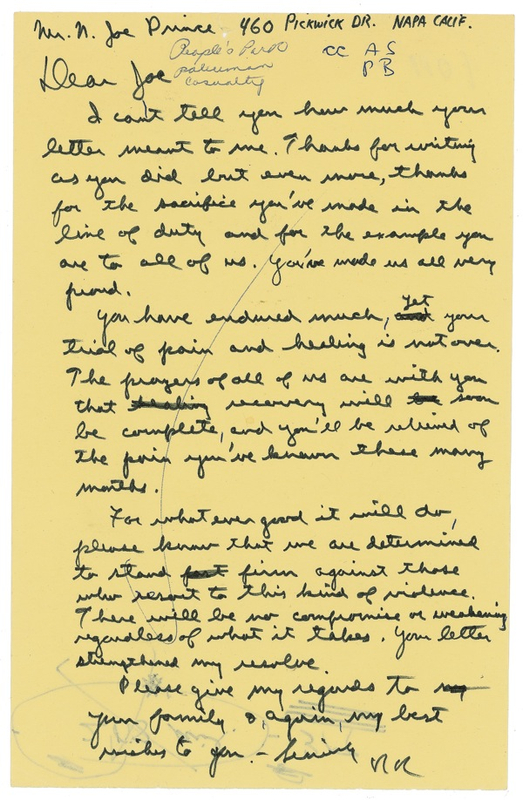 Mr. N. Joe Prince 460 PICKWICK DR. NAPA CALIF.
People's Park
policeman
casualty
cc AS
PB
Dear Joe
I can't tell you how much your
letter meant to me. Thanks for writing
as you did but even more, thanks
for the sacrifice you've made in the
line of duty and for the example you
are to all of us. You've made us all very
proud.
You have endured much, and yet your
trial of pain and healing is not over.
The prayers of all of us are with you
that healing recovery will be soon
be complete, and you'll be relieved of
the pain you've known these many
months.
For what ever good it will do,
please know that we are determined
to stand fast firm against those
who resort to this kind of violence.
There will be no compromise or weakening
regardless of what it takes. Your letter
strengthened my resolve.
Please give my regards to my
your family &, again, my best
wishes to you. – Sincerely RR